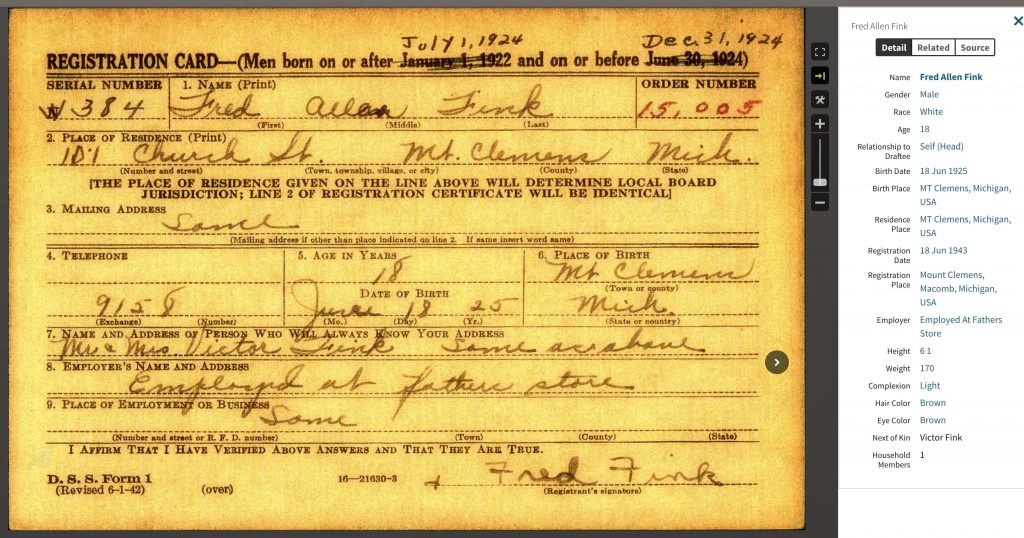 July 1, 1924 Dec. 31, 1924
REGISTRATION CARD—(Men born on or after January 1, 1922 and on or before June 30, 1924)
SERIAL NUMBER 1. NAME (Print) ORDER NUMBER
N 384 Fred Allen Fink 15,005
(First) (Middle) (Last)
2. PLACE OF RESIDENCE (Print)
101 Church St. Mt. Clemens Mich.
(Number and street) (Town, township, village, or city) (County) (State)
[THE PLACE OF RESIDENCE GIVEN ON THE LINE ABOVE WILL DETERMINE LOCAL BOARD
JURISDICTION; LINE 2 OF REGISTRATION CERTIFICATE WILL BE IDENTICAL]
3. MAILING ADDRESS
Same
(Mailing address if other than place indicated on line 2. If same insert word same)
4. TELEPHONE 5. AGE IN YEARS 6. PLACE OF BIRTH
18 Mt Clemens
DATE OF BIRTH (Town or county)
9158 June 18 25 Mich.
(Exchange) (Number) (Mo.) (Day) (Yr.) (State or country)
7. NAME AND ADDRESS OF PERSON WHO WILL ALWAYS KNOW YOUR ADDRESS
Mr & Mrs. Victor Fink Same as above
8. EMPLOYER'S NAME AND ADDRESS
Employed at fathers store
9. PLACE OF EMPLOYMENT OR BUSINESS
Same
(Number and street or R. F. D. number) (Town) (County) (State)
I AFFIRM THAT I HAVE VERIFIED ABOVE ANSWERS AND THAT THEY ARE TRUE.
D. S. S. Form 1
(Revised 6-1-42) (over) 16—21630-3 Fred Fink
(Registrant's signature)
Fred Allen Fink
Detail Related Source
Name Fred Allen Fink
Gender Male
Race White
Age 18
Relationship to Self (Head)
Draftee
Birth Date 18 Jun 1925
Birth Place MT Clemens, Michigan,
USA
Residence MT Clemens, Michigan,
Place USA
Registration 18 Jun 1943
Date
Registration Mount Clemens,
Place Macomb, Michigan,
USA
Employer Employed At Fathers
Store
Height 6 1
Weight 170
Complexion Light
Hair Color Brown
Eye Color Brown
Next of Kin Victor Fink
Household 1
Members